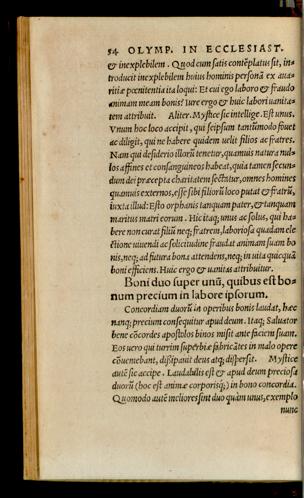 54 OLYMP. IN ECCLESIAST.
& inexplebilem. Quod cum satis contēplatus sit, in-
troducit inexplebilem huius hominis personā ex aua-
ritiæ pœnitentia ita loqui: Et cui ego laboro & fraudo
animam meam bonis? Iure ergo & huic labori uanita-
tem attribuit. Aliter. Mystice sic intellige. Est unus.
Vnum hoc loco accipit, qui seipsum tantūmodo fouet
ac diligit, qui ne habere quidem uelit filios ac fratres.
Nam qui desiderio illorū tenetur, quamuis natura nul-
los affines et consanguineos habeat, quia tamen secun-
dum dei præcepta charitatem sectatur, omnes homines
quamuis externos, esse sibi filiorū loco putat & fratrū,
iuxta illud: Esto orphanis tanquam pater, & tanquam
maritus matri eorum. Hic itaq; unus ac solus, qui ha-
bere non curat filiū neq; fratrem, laboriosa quadam ele-
ctione uiuendi ac solicitudine fraudat animam suam bo
nis, neq; ad futura bona attendens, neq; in uita quicquā
boni efficiens. Huic ergo & uanitas attribuitur.
Boni duo super unū, quibus est bo-
num precium in labore ipsorum.
Concordiam duorū in operibus bonis laudat, hæc
nanq; precium consequitur apud deum. Itaq; Saluator
bene cōcordes apostolos binos misit ante faciem suam.
Eos uero qui turrim superbiæ fabricātes in malo opere
cōuenebant, dissipauit deus atq; dispersit. Mystice
autē sic accipe. Laudabilis est & apud deum preciosa
duorū (hoc est animæ corporisq;) in bono concordia.
Quomodo autē meliores sint duo quàm unus, exemplo
nunc